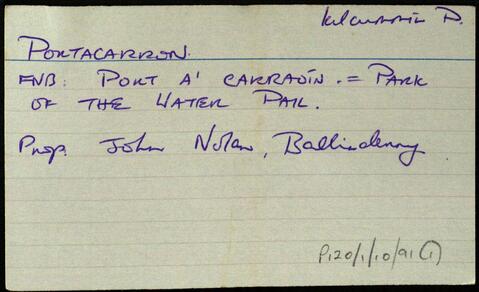 Kilcummin P.
PORTACARRON.
FNB: PORT A' CARRAOÍN. = PARK
OF THE WATER PAIL.
Prop. John Nolan, Ballinderry
P120/1/10/91(1)